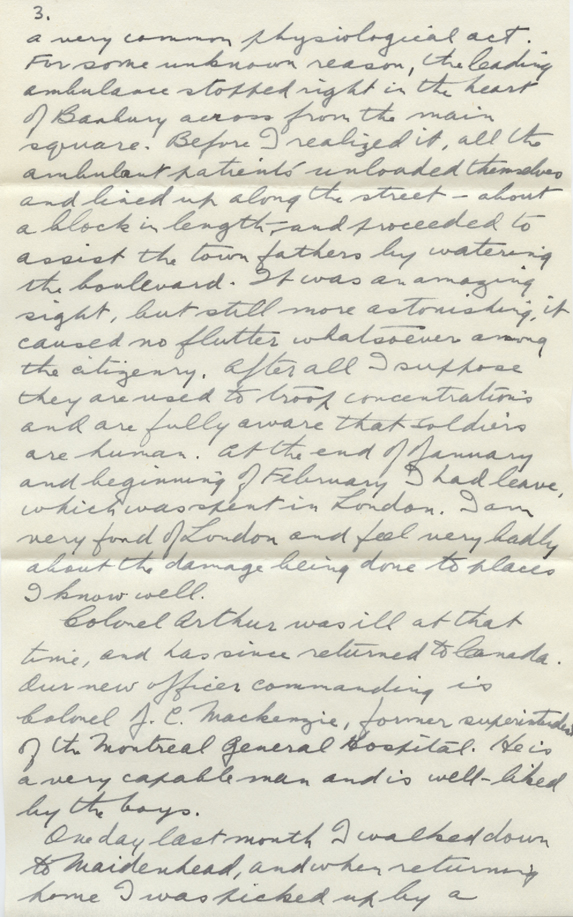 3.
a very common physiological act.
For some unknown reason, the leading
ambulance stopped right in the heart
of Banbury across from the main
square. Before I realized it, all the
ambulant patients' unloaded themselves
and lined up along the street - about
a block in length, and proceeded to
assist the town fathers by watering
the boulevard. It was an amazing
sight, but still more astonishing, it
caused no flutter whatsoever among
the citizenry. After all I suppose
they are used to troop concentrations
and are fully aware that soldiers
are human. At the end of January
and beginning of February I had leave,
which was spent in London. I am
very fond of London and feel very badly
about the damage being done to places
I know well.
Colonel Arthur was ill at that
time, and has since returned to Canada.
Our new officer commanding is
Colonel J. C. Mackenzie, former superintendent
of the Montreal General Hospital. He is
a very capable man and is well-liked
by the boys.
One day last month I walked down
to Maidenhead, and when returning
home I was picked up by a